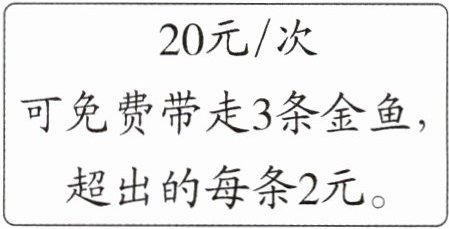 20元/次
可免费带走3条金鱼，
超出的每条2元。